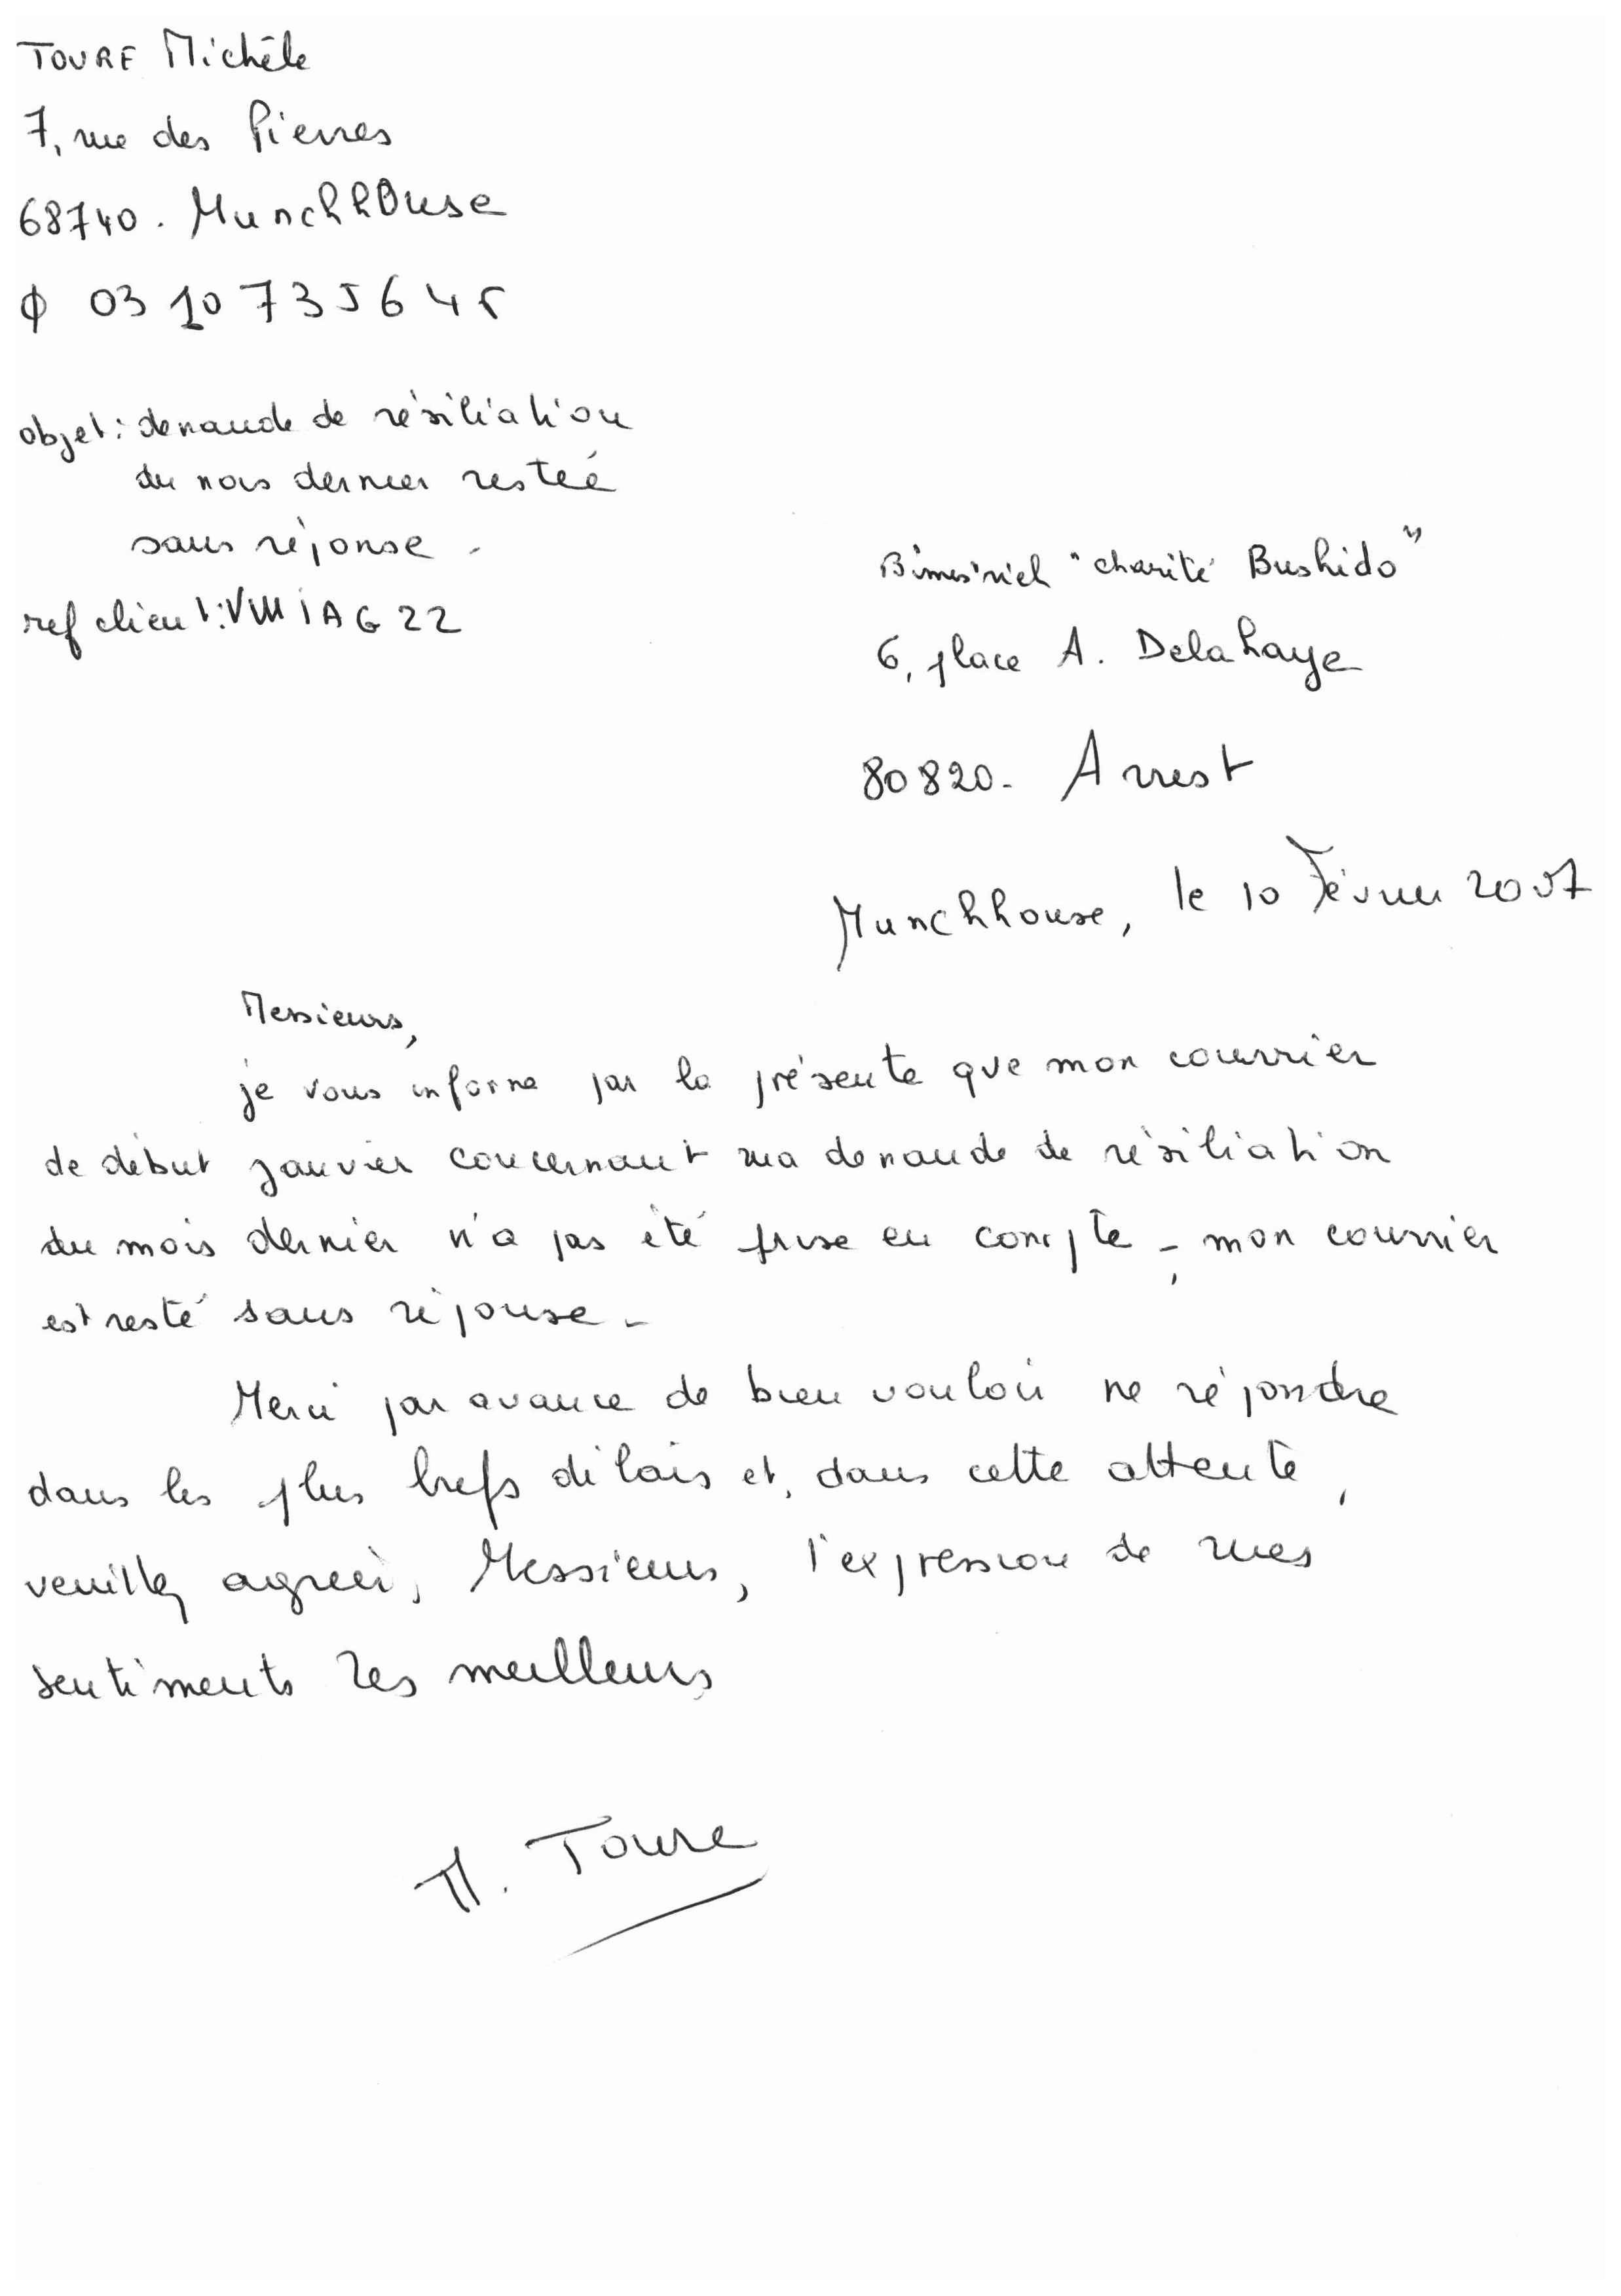 TOURE Michèle
7, rue des Pierres
68740. Munchhouse
ϕ 03 10 73 56 45
objet : demande de résiliation
du mois dernier restée
sans réponse.
ref client : VMIAG22
Bimestriel "charité Bushido"
6, place A. Delahaye
80820. Arrest
Munchhouse, le 10 Février 2007
Messieurs,
je vous informe par la présente que mon courrier
de début janvier concernant ma demande de résiliation
du mois dernier n'a pas été prise en compte ; mon courrier
est resté sans réponse.
Merci par avance de bien vouloir me répondre
dans les plus brefs délais et, dans cette attente,
veuillez agréer, Messieurs, l'expression de mes
sentiments les meilleurs
M. Toure